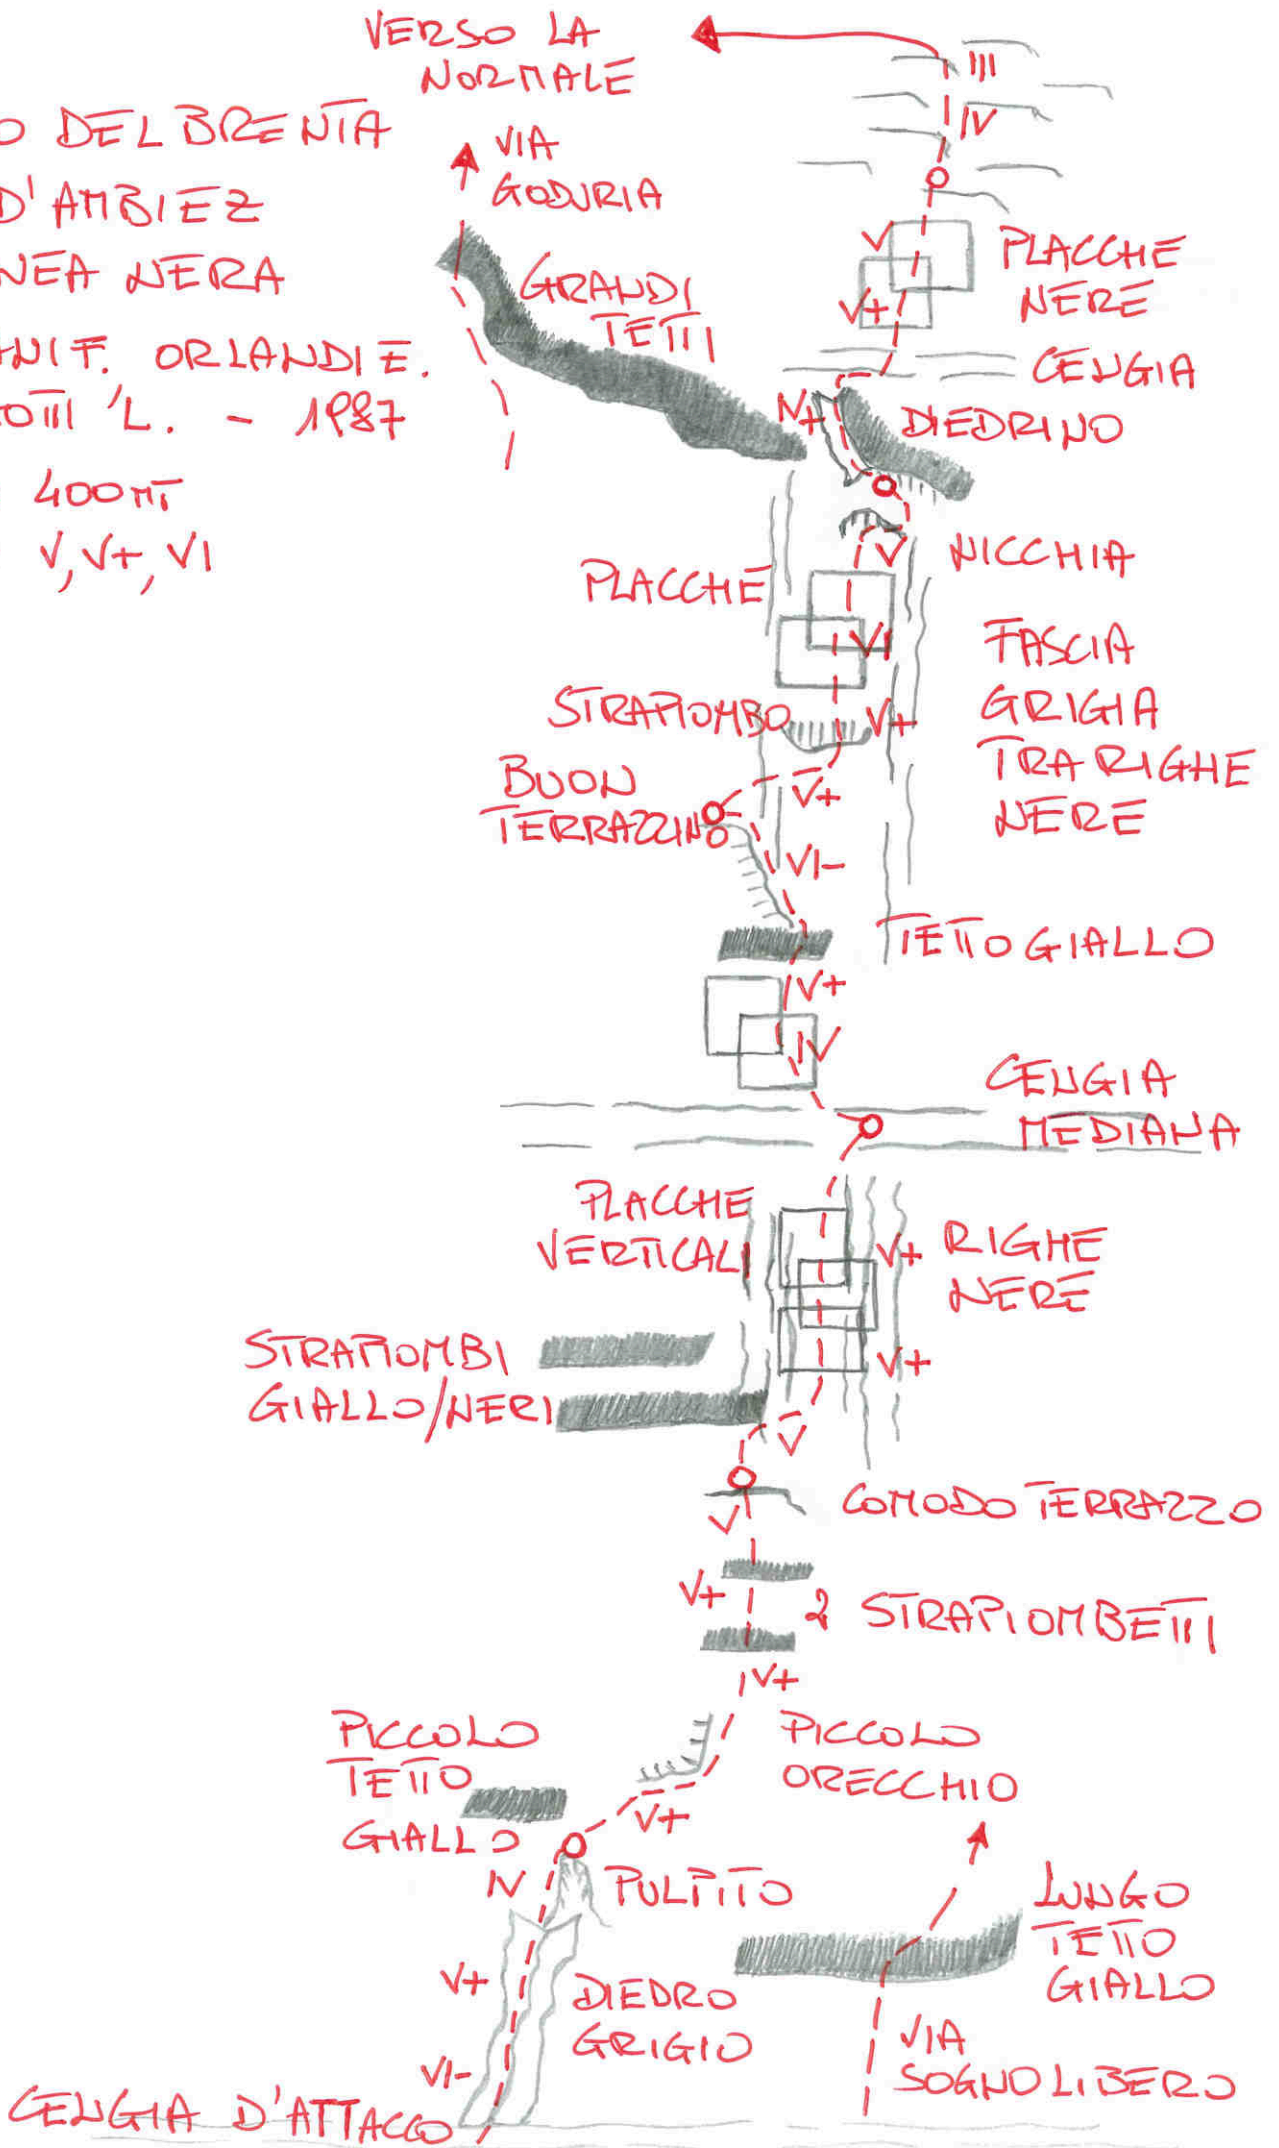 VERSO LA
NORMALE
O DEL BRENTA
D'AMBIEZ
NEA NERA
NIF. ORLANDI E.
OTTI 'L. - 1987
400 MT
V, V+, VI
VIA
GODURIA
GRANDI
TETTI
III
IV
V
V+
PLACCHE
NERE
CENGIA
IV+
DIEDRINO
V
NICCHIA
PLACCHE
VI
FASCIA
GRIGIA
TRA RIGHE
NERE
STRAPIOMBO
V+
BUON
TERRAZZINO
V+
VI-
TETTO GIALLO
IV+
IV
CENGIA
MEDIANA
PLACCHE
VERTICALI
V+
RIGHE
NERE
STRAPIOMBI
GIALLO/NERI
V+
V
COMODO TERRAZZO
V
V+
2 STRAPIOMBETTI
IV+
PICCOLO
TETTO
GIALLO
PICCOLO
ORECCHIO
V+
IV
PULPITO
LUNGO
TETTO
GIALLO
V+
DIEDRO
GRIGIO
VIA
SOGNO LIBERO
VI-
CENGIA D'ATTACCO